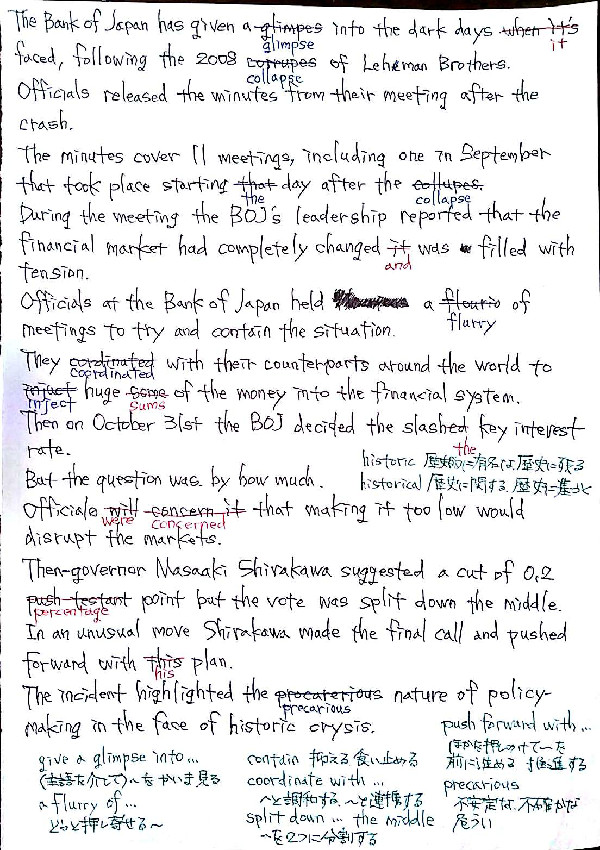 The Bank of Japan has given a glimpes into the dark days when it's
glimpse it
faced, following the 2008 corrupes of Lehman Brothers.
collapse
Officials released the minutes from their meeting after the
crash.
The minutes cover 11 meetings, including one in September
that took place starting that day after the collupes.
the collapse
During the meeting the BOJ's leadership reported that the
financial market had completely changed it was filled with
and
tension.
Officials at the Bank of Japan held a flourio of
flurry
meetings to try and contain the situation.
They cordinated with their counterparts around the world to
coordinated
injuct huge some of the money into the financial system.
inject sums
Then on October 31st the BOJ decided the slashed key interest
the
rate.
historic 歴史的に有名な、歴史に残る
But the question was by how much.
historical 歴史に関する、歴史に基づく
Officials will concern it that making it too low would
were concerned
disrupt the markets.
Then-governor Masaaki Shirakawa suggested a cut of 0.2
push-testant point but the vote was split down the middle.
percentage
In an unusual move Shirakawa made the final call and pushed
forward with this plan.
his
The incident highlighted the procaterious nature of policy-
precarious
making in the face of historic crysis.
give a glimpse into...
(主語を介して)〜をかいま見る
a flurry of...
どっと押し寄せる〜
contain 抑える 食い止める
coordinate with...
〜と調和する、〜と連携する
split down ... the middle
〜を2つに分割する
push forward with...
ほかを押しのけて〜を
前に進める 推進する
precarious
不安定な、不確かな
危うい